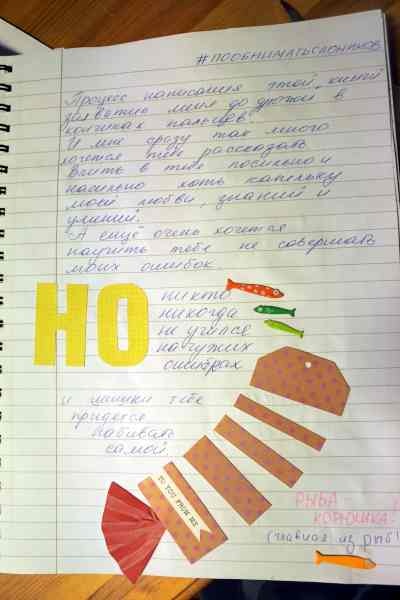 #ПООБНИМАТЬСЛОНИКОВ
Процесс написания этой книги
меня до дрожи в
кончиках пальцев.
И мне сразу так много
хочется тебе рассказать
в тебя посильно и
насильно хоть капельку
моей любви, знаний и
умений.
А ещё очень хочется
научить тебя не совершать
моих ошибок.
НО
никто
никогда
не учился
на чужих
ошибках
и шишки тебе
придется
набивать
самой.
TO YOU FROM ME
РЫБА -
КОРЮШКА!
(главная из рыб!